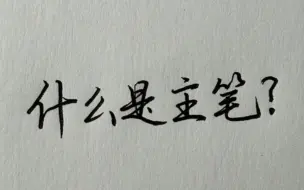 什么是主笔？